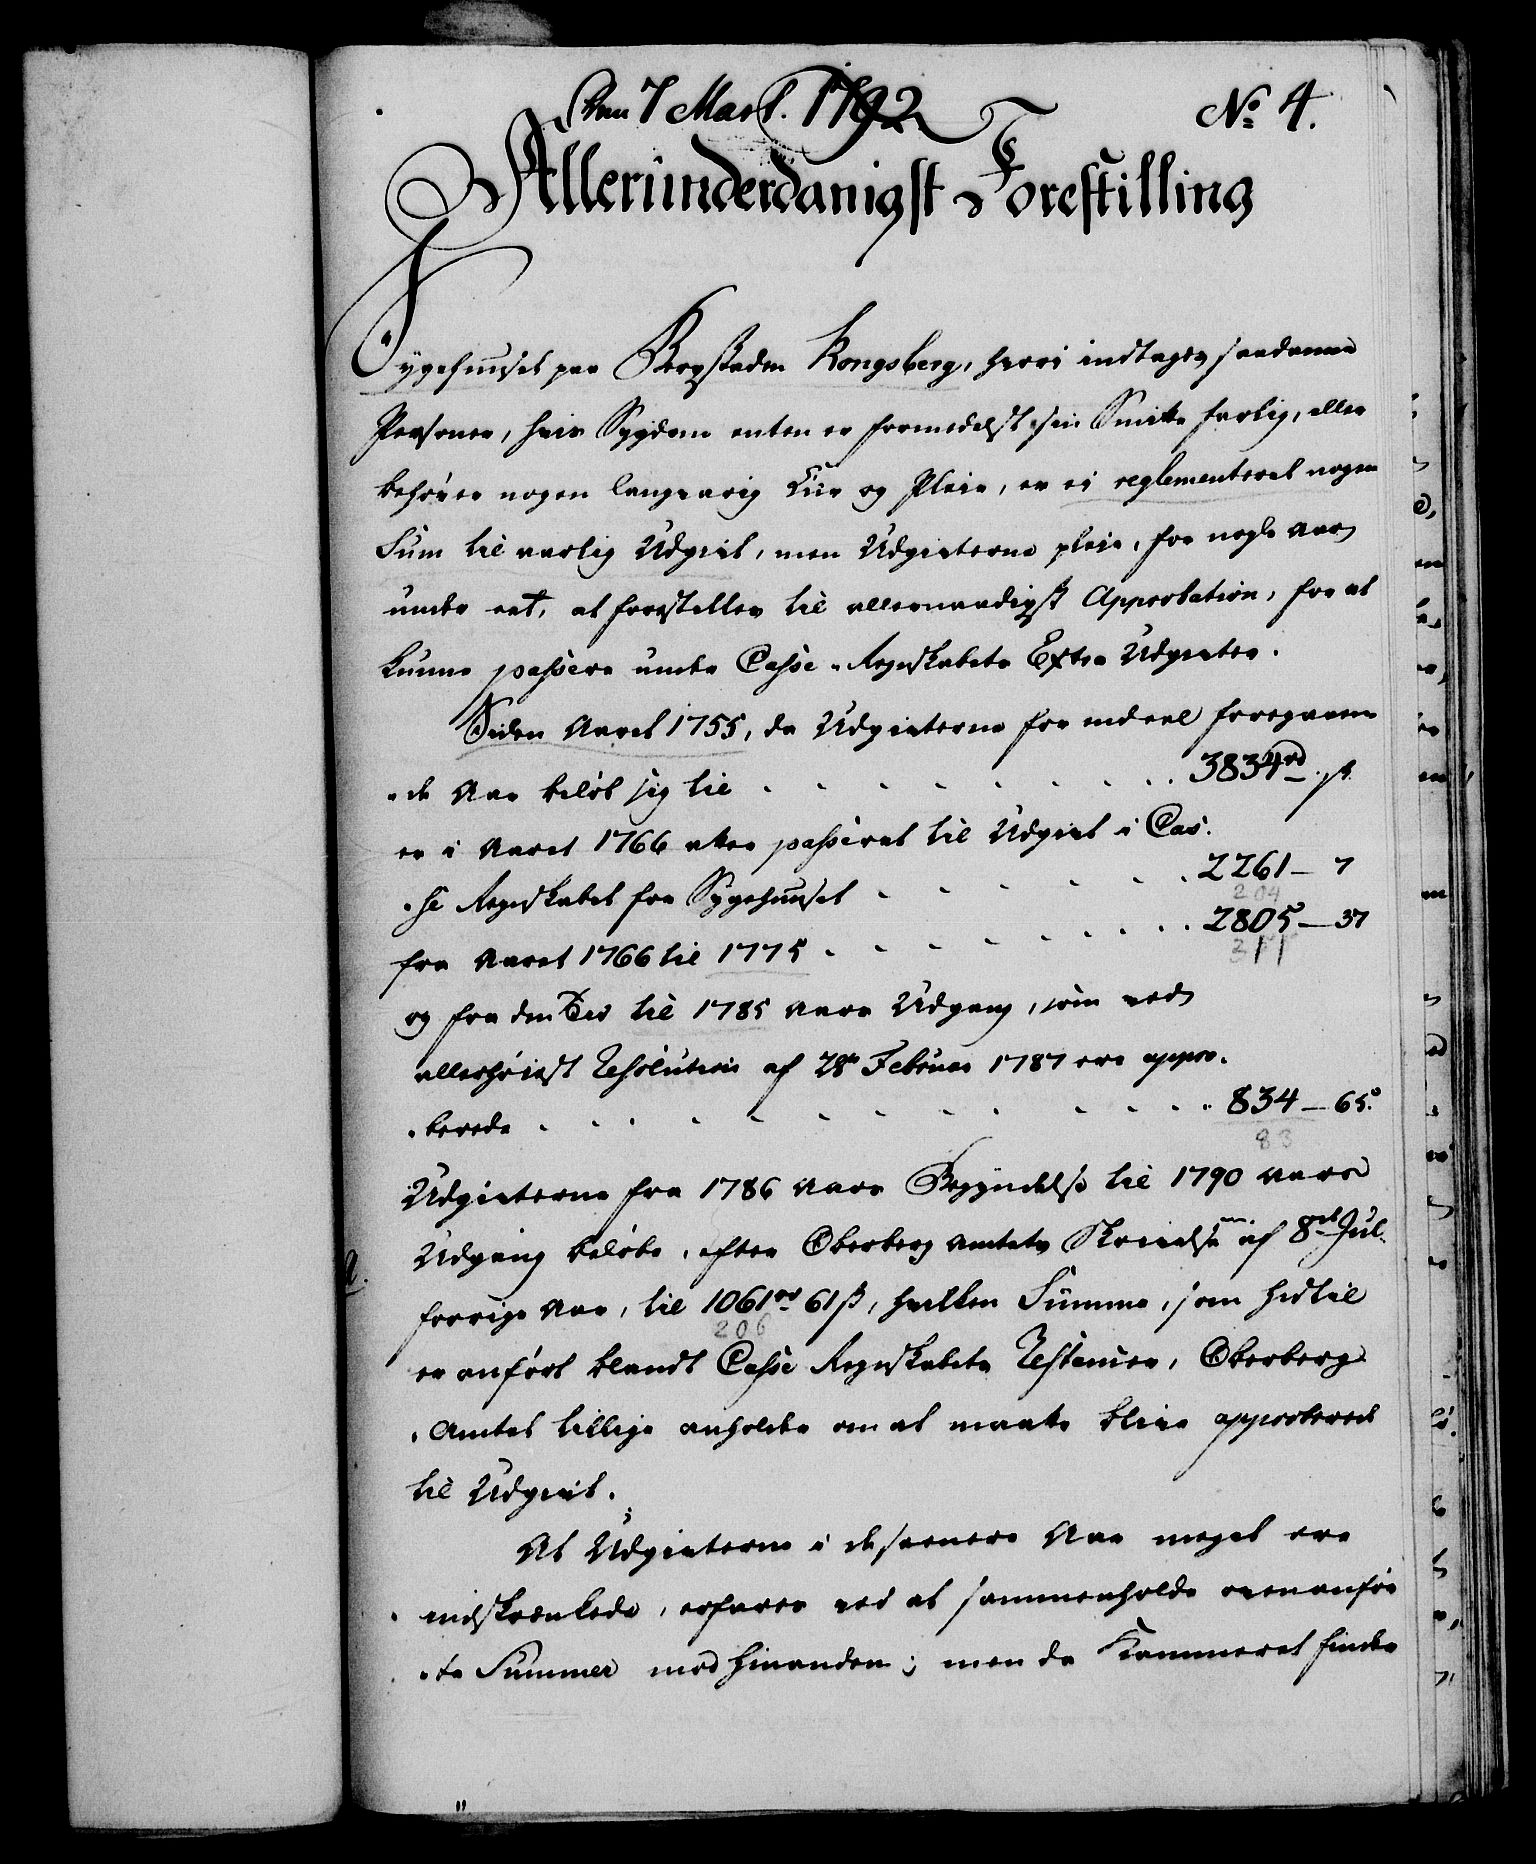 Den 7 Mart. 1792.
No 4.
Allerunderdanigst Forestilling
Sygehuuset paa Bergstaden Kongsberg, hvori indtages saadanne
Personer, hvis Sygdom enten er formedelst sin Smitte farlig, eller
behøver nogen langvarig Cuur og Pleie, er ei reglementeret nogen
Sum til aarlig Udgivt, men Udgivterne pleie, for nogle Aar
under eet, at forestilles til allernaadigst Approbation, for at
kunne passere under Casse-Regnskabets Extra Udgivter.
Siden Aaret 1755, da Udgivterne for endeel foregaaen-
-de Aar beløb sig til . . . . . . . . 3834 rd. . ß
er i Aaret 1766 atter passeret til Udgivt i Cas-
-se Regnskabet for Sygehuuset . . . . . . 2261 – 7
204
fra Aaret 1766 til 1775 . . . . . . . . 2805 – 37
311
og fra den Tid til 1785 Aars Udgang, som ved
allerhøiest Resolution af 28de Februar 1787 ere appro-
-berede . . . . . . . . . . . . 834 – 65.
83
Udgivterne fra 1786 Aars Begyndelse til 1790 Aars
Udgang beløbe, efter Oberberg Amtets Skrivelse af 8de Jul.
forrige Aar, til 1061 rd 61 ß, hvilken Summa, som hidtil
206
er anført blandt Casse Regnskabets Restancer, Oberberg-
-Amtet tillige anholder om at maatte blive approberet
til Udgivt.
At Udgivterne i de seenere Aar meget ere
indskrænkede, erfares ved at sammenholde ovenanfør-
-te Summer mod hinanden; men da Kammeret finder